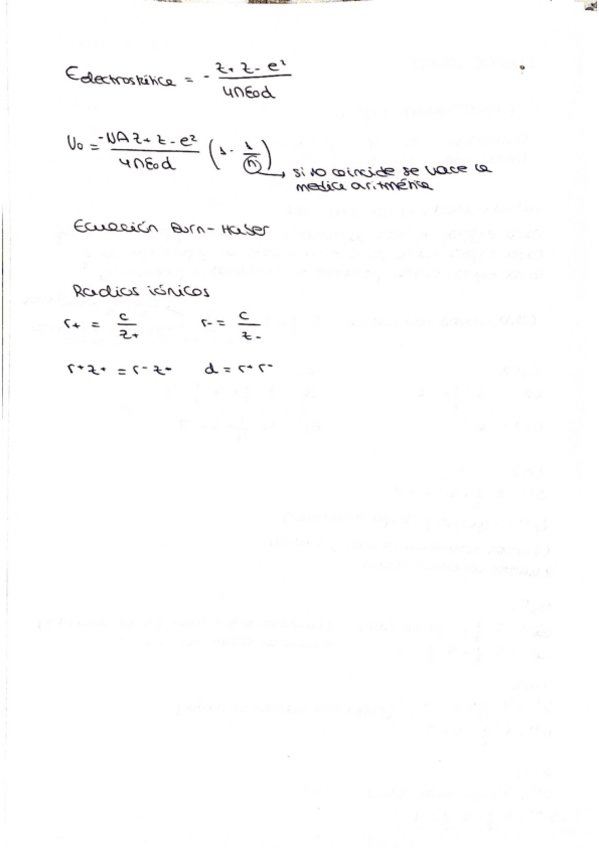 Eelectrostática = - z+ z- e² / 4πε₀d
U₀ = -NA z+ z- e² / 4πε₀d (1 - 1/n) → si no coincide se hace la
media aritmética
Ecuación Burn-Haber
Radios iónicos
r+ = c / z+ r- = c / z-
r+z+ = r-z- d = r+ r-